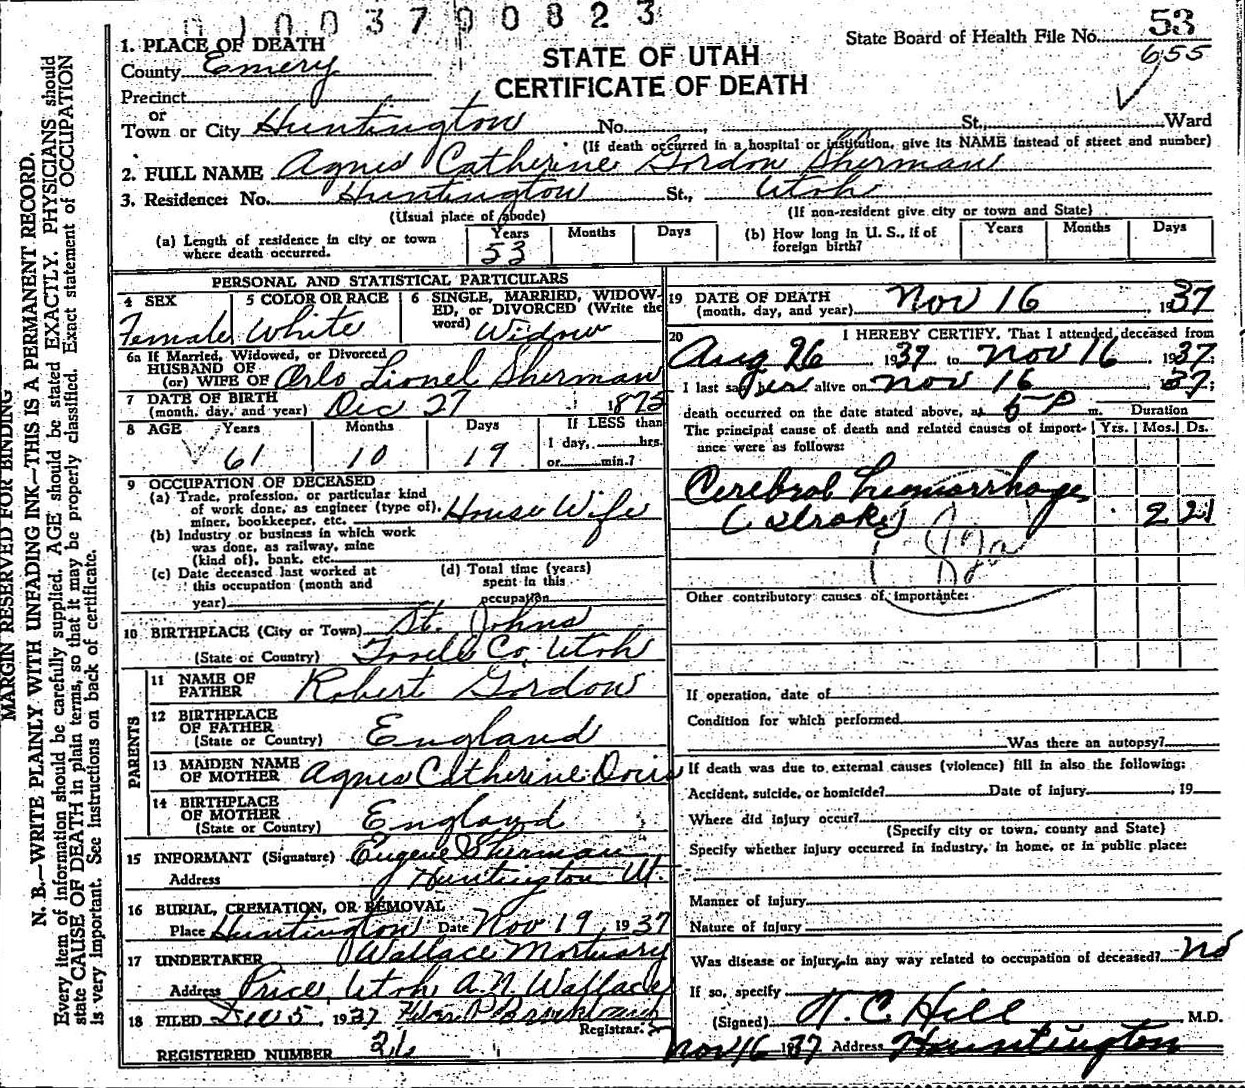 0 1 0 0 3 7 9 0 0 8 2 3
53
State Board of Health File No.
655
STATE OF UTAH
CERTIFICATE OF DEATH
1. PLACE OF DEATH
County Emery
Precinct
or
Town or City Huntington No. , St., Ward
(If death occurred in a hospital or institution, give its NAME instead of street and number)
2. FULL NAME Agnes Catherine Gordon Sherman
3. Residence: No. Huntington St., Utah
(Usual place of abode) (If non-resident give city or town and State)
(a) Length of residence in city or town where death occurred. Years 53 Months Days
(b) How long in U. S., if of foreign birth? Years Months Days
PERSONAL AND STATISTICAL PARTICULARS
4 SEX Female
5 COLOR OR RACE White
6 SINGLE, MARRIED, WIDOWED, or DIVORCED (Write the word) Widow
6a If Married, Widowed, or Divorced
HUSBAND OF
(or) WIFE OF Orlo Lionel Sherman
7 DATE OF BIRTH
(month, day, and year) Dec 27 1875
8 AGE Years 61 Months 10 Days 19
If LESS than
1 day, hrs.
or min.?
9 OCCUPATION OF DECEASED
(a) Trade, profession, or particular kind
of work done, as engineer (type of),
miner, bookkeeper, etc. House Wife
(b) Industry or business in which work
was done, as railway, mine
(kind of), bank, etc.
(c) Date deceased last worked at
this occupation (month and
year)
(d) Total time (years)
spent in this
occupation
10 BIRTHPLACE (City or Town) St. Johns
(State or Country) Tooele Co. Utah
PARENTS
11 NAME OF FATHER Robert Gordon
12 BIRTHPLACE OF FATHER (State or Country) England
13 MAIDEN NAME OF MOTHER Agnes Catherine
14 BIRTHPLACE OF MOTHER (State or Country) England
15 INFORMANT (Signature) Eugene Sherman
Address Huntington Ut.
16 BURIAL, CREMATION, OR REMOVAL
Place Huntington Date Nov 19, 1937
17 UNDERTAKER Wallace Mortuary
Address Price, Utah A.N. Wallace
18 FILED 5, 1937
Registrar.
REGISTERED NUMBER
19 DATE OF DEATH
(month, day, and year) Nov 16 1937
20 I HEREBY CERTIFY, That I attended deceased from
Aug 26 1937 to Nov 16, 1937;
I last saw her alive on Nov 16 1937;
death occurred on the date stated above, at 5 P m. Duration
The principal cause of death and related causes of importance were as follows: Yrs. Mos. Ds.
Cerebral hemorrhage
(Stroke) 2 21
82a
Other contributory causes of importance:
If operation, date of
Condition for which performed
Was there an autopsy?
If death was due to external causes (violence) fill in also the following:
Accident, suicide, or homicide? Date of injury , 19
Where did injury occur?
(Specify city or town, county and State)
Specify whether injury occurred in industry, in home, or in public place:
Manner of Injury
Nature of Injury
Was disease or injury in any way related to occupation of deceased? No
If so, specify
(Signed) H. C. Hill M.D.
Nov 16 1937 Address Huntington
MARGIN RESERVED FOR BINDING
N. B.—WRITE PLAINLY WITH UNFADING INK—THIS IS A PERMANENT RECORD.
Every item of information should be carefully supplied. AGE should be stated EXACTLY. PHYSICIANS should
state CAUSE OF DEATH in plain terms, so that it may be properly classified. Exact statement of OCCUPATION
is very important. See instructions on back of certificate.